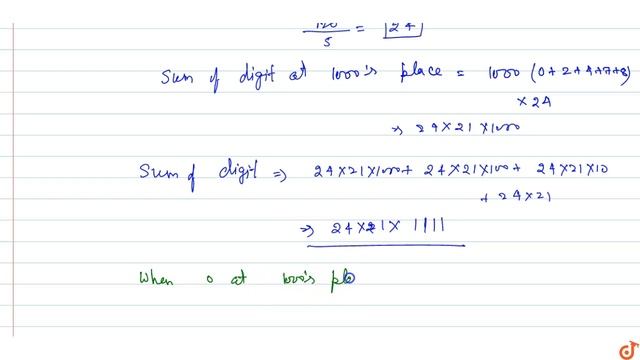 120/5 = 24
Sum of digit at 1000's place = 1000 (0+2+4+7+8)
×24
⇒ 24×21×1000
Sum of digit ⇒ 24×21×1000+ 24×21×100+ 24×21×10
+ 24×21
⇒ 24×21× 1111
When 0 at 1000's pla
doubtnut